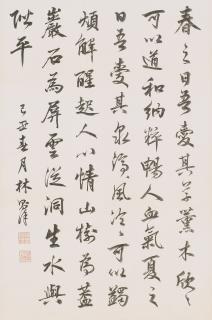 春之日吾愛其草薰木欣〻
可以道和納粹暢人血氣夏之
日吾愛其泉渟風泠〻可以蠲
煩解酲起人心情山樹為蓋
巖石為屏雲從洞生水與
階平
己亥春月林